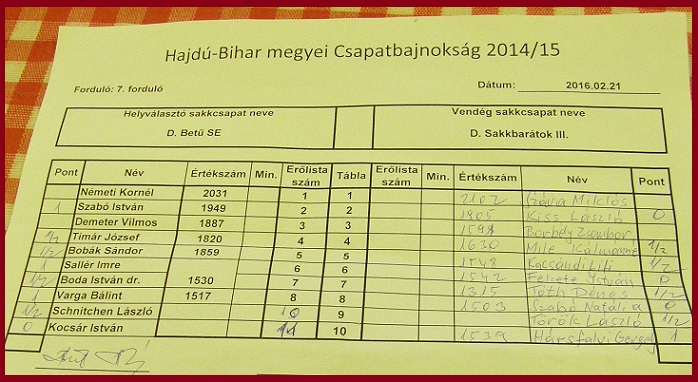 Hajdú-Bihar megyei Csapatbajnokság 2014/15
Forduló: 7. forduló Dátum: 2016.02.21
Helyválasztó sakkcsapat neve Vendég sakkcsapat neve
D. Betű SE D. Sakkbarátok III.
Pont Név Értékszám Min. Erőlista szám Tábla Erőlista szám Min. Értékszám Név Pont
Németi Kornél 2031 1 1 2102 Miklós
1 Szabó István 1949 2 2 1905 Kiss László 0
Demeter Vilmos 1887 3 3 1598 Borbély
1/2 Timár József 1820 4 4 1630 Mile Kálmánné 1/2
1/2 Bobák Sándor 1859 5 5 1548 Kacsándi Liti 1/2
1 Sallér Imre 6 6 1542 Fekete István 0
1/2 Boda István dr. 1530 7 7 1315 Tóth Dénes 1/2
1 Varga Bálint 1517 8 8 1503 Szabó Natália 0
1/2 Schnitchen László 10 9 Török László 1/2
0 Kocsár István 11 10 1539 Hársfalvi Gergej 1